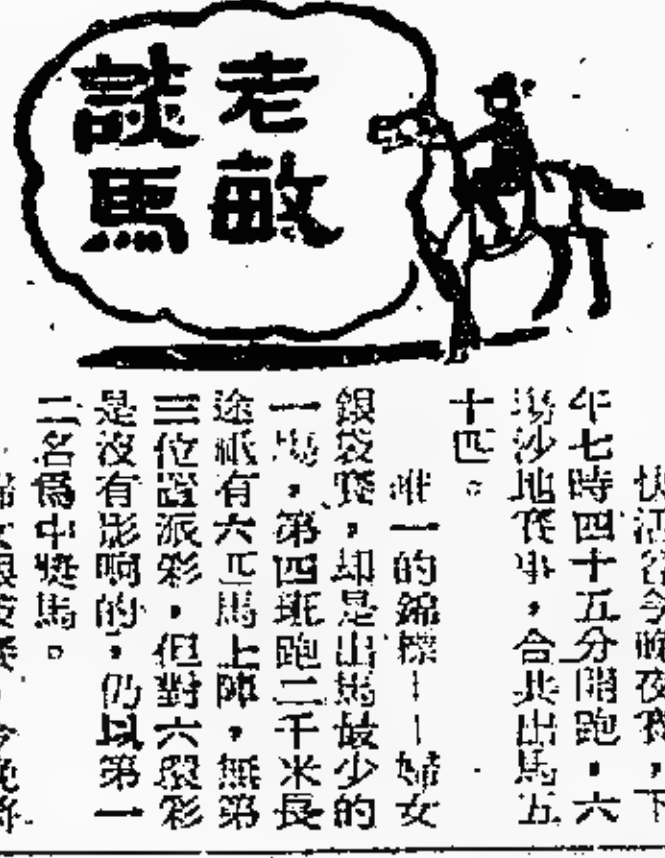 老敏
談馬
快活谷今晚夜賽，下
午七時四十五分開跑，六
場沙地賽事，合共出馬五
十匹。
唯一的錦標——婦女
銀袋賽，却是出馬最少的
一場，第四班跑二千米長
途祇有六匹馬上陣，無第
三位置派彩，但對六環彩
是沒有影响的，仍以第一
二名爲中獎馬。
婦女銀袋賽，今晚將